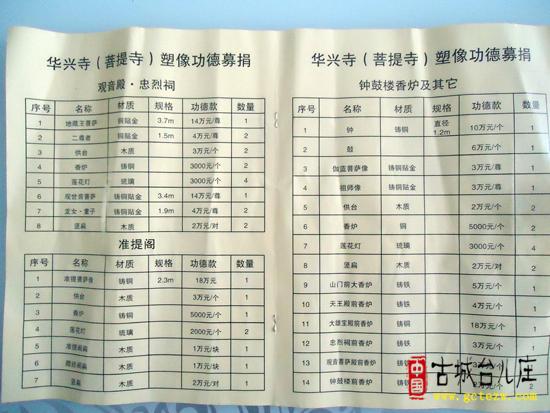 华兴寺（菩提寺）塑像功德募捐
观音殿·忠烈祠
序号 名称 材质 规格 功德款 数量
1 地藏王菩萨 铜贴金 3.7m 14万元/尊 1
2 二尊者 铜贴金 1.5m 4万元/尊 2
3 供台 木质 3万元/个 2
4 香炉 铸铜 3000元/个 2
5 莲花灯 琉璃 3000元/个 4
6 观世音菩萨 铸铜贴金 3.4m 14万元/尊 1
7 龙女·童子 铸铜贴金 1.9m 4万元/尊 2
8 竖扁 木质 2万元/对 2
准提阁
序号 名称 材质 规格 功德款 数量
1 准提菩萨像 铸铜 2.3m 18万元 1
2 供台 木质 3万元/个 1
3 香炉 铸铜 5000元/个 1
4 莲花灯 琉璃 2000元/个 2
5 准提阁扁 木质 1万元/块 1
6 木质 1万元/块 1
7 竖扁 木质 2万元/对
华兴寺（菩提寺）塑像功德募捐
钟鼓楼香炉及其它
序号 名称 材质 规格 功德款 数量
1 钟 铸铜 直径1.2m 10万元/个 1
2 鼓 6万元/个 1
3 伽蓝菩萨像 铸铜贴金 3万元/尊 1
4 祖师像 铸铜贴金 3万元/尊 1
5 供台 木质 2万元/个 2
6 香炉 铜 5000元/个 2
7 莲花灯 琉璃 3000元/个 4
8 竖扁 木质 2万元/对 2
9 山门前大香炉 铸铁 5万元/个 1
10 天王殿前香炉 铸铁 4万元/个 1
11 大雄宝殿前香炉 铸铜 18万元/个 1
12 忠烈祠前香炉 铸铁
13 观音菩萨殿前香炉 铸铁
14 钟鼓楼前香炉 铸铁 2万元/个 2
中国 古城台儿庄
www.gctezw.com